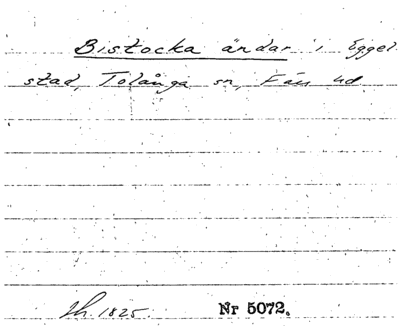 Bistocka ändar i Eggel-
stad, Tolånga sn, Färs hd
Lh. 1825. Nr 5072.